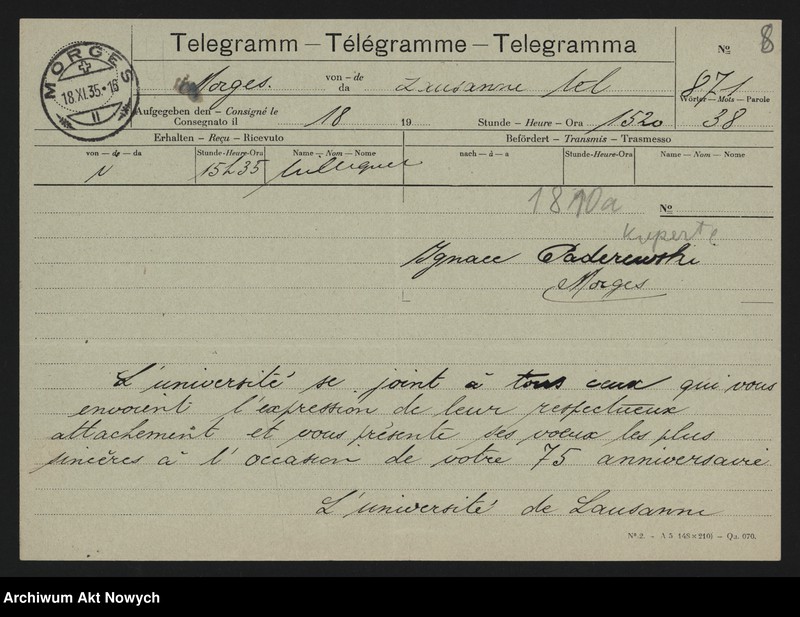 Telegramm – Télégramme – Telegramma
№ 8
MORGES
18.XI.35.-16
II
Morges.
von – de
da
Lausanne tel
871
Wörter – Mots – Parole
38
Aufgegeben den – Consigné le
Consegnato il
18
19
Stunde – Heure – Ora
1520
Erhalten – Reçu – Ricevuto
Befördert – Transmis – Trasmesso
von – de – da
Stunde-Heure-Ora
Name – Nom – Nome
nach – à – a
Stunde-Heure-Ora
Name – Nom – Nome
15h35
1810a
№
Ignace Paderewski
Morges
L'université se joint à tous ceux qui vous
envoient l'expression de leur respectueux
attachement et vous présente ses voeux les plus
sincères à l'occasion de votre 75 anniversaire
L'université de Lausanne
Nº.2. – A 5 148×210) – Qu. 070.
Archiwum Akt Nowych